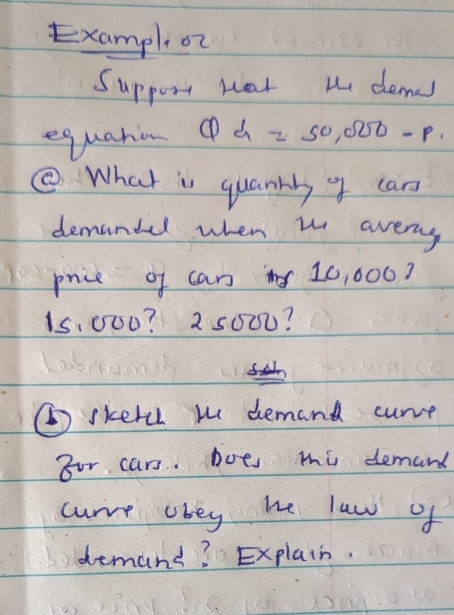 Example 02
Suppose that the demand
equation Qd = 50,000 - p.
(a) What is quantity of cars
demanded when the average
price of cars is 10,000?
15,000? 25000?
soln
(b) sketch the demand curve
for cars. Does this demand
curve obey the law of
demand? Explain.